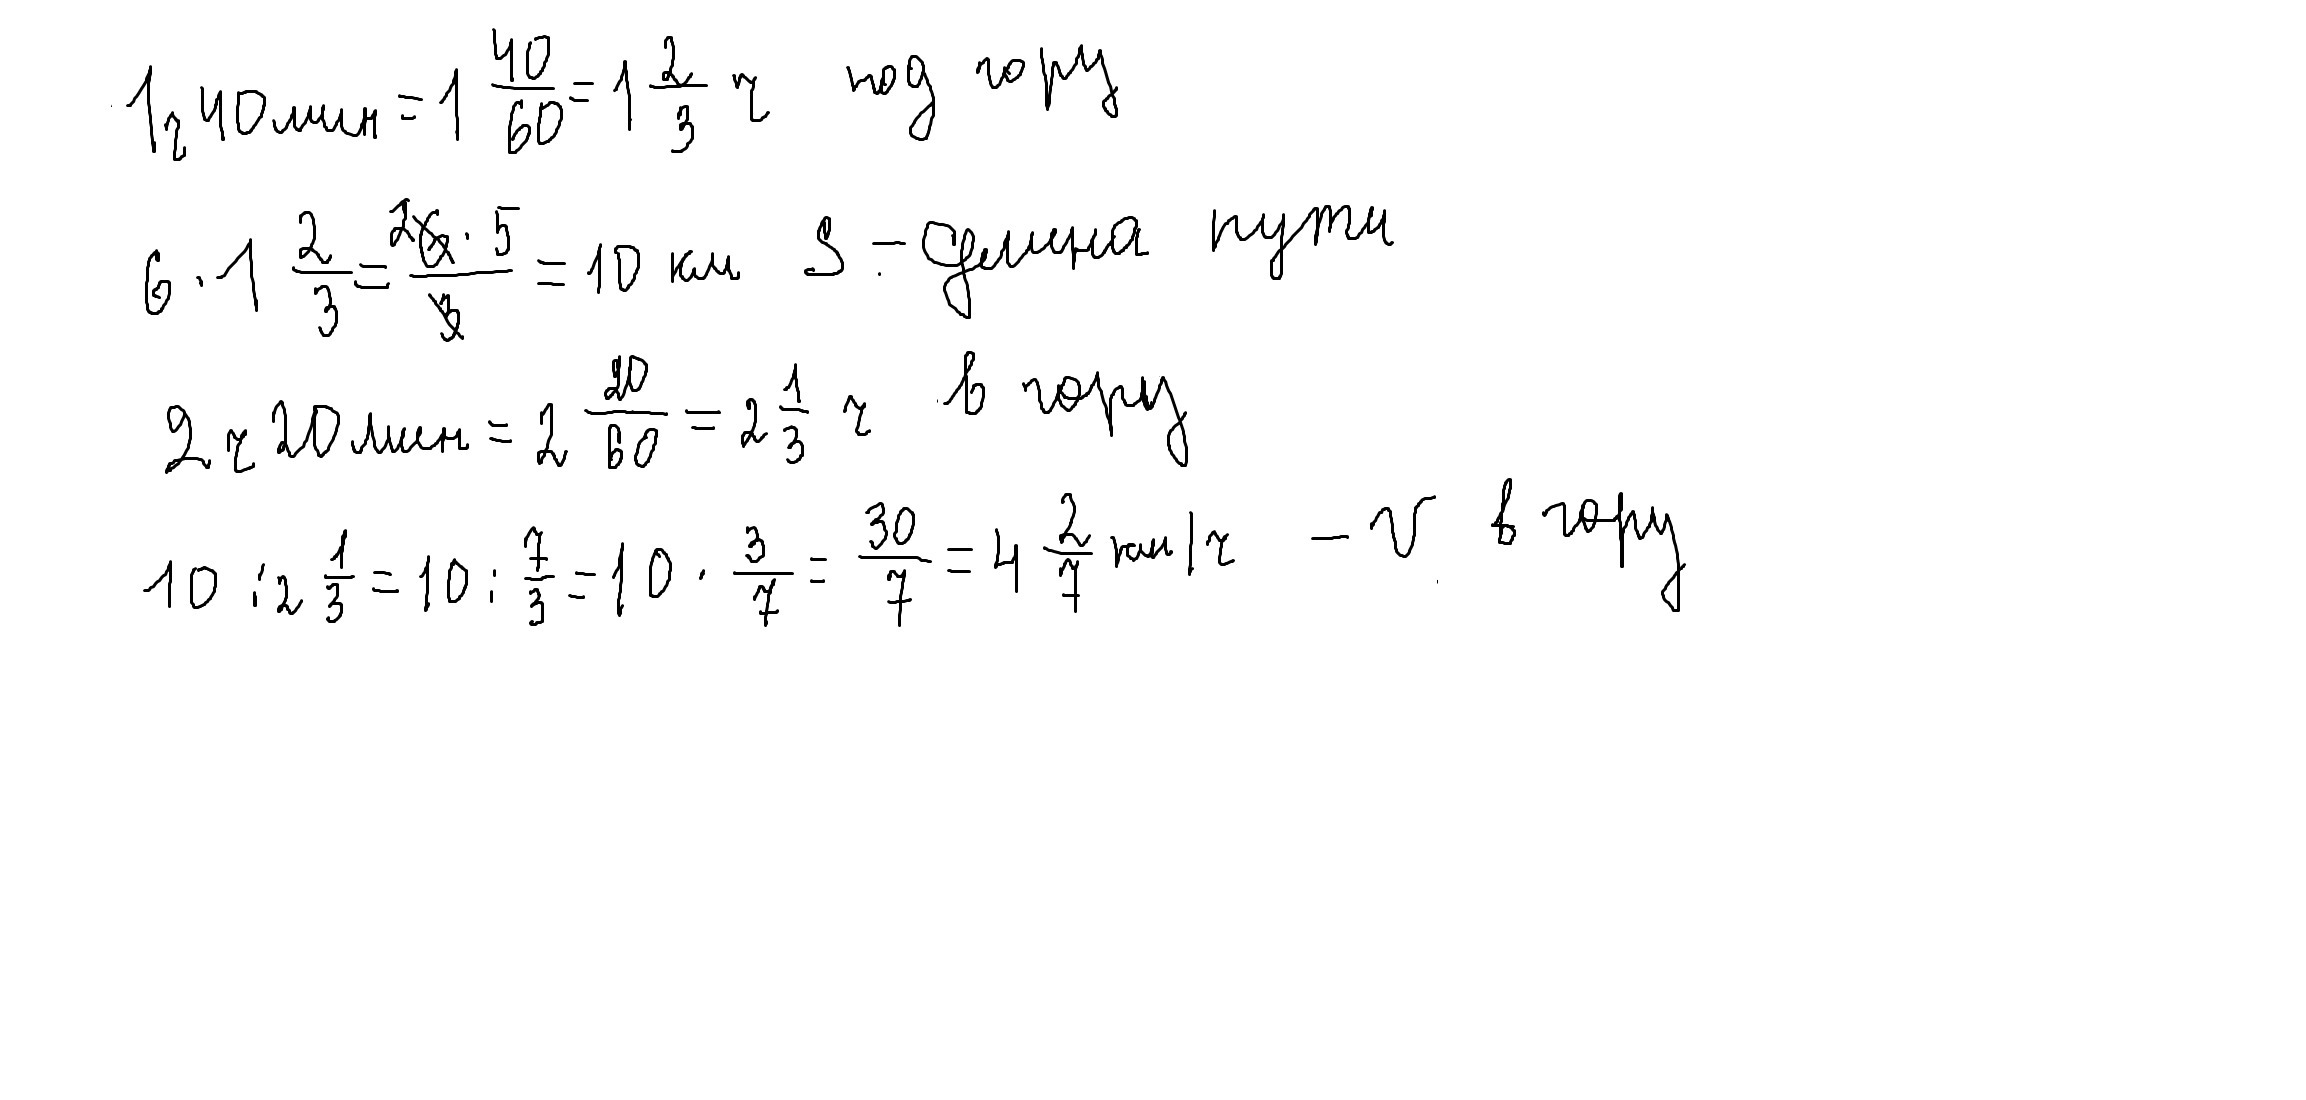 1ч 40мин = 1 40/60 = 1 2/3 ч под гору
6 · 1 2/3 = 2 6 · 5/3 = 10 км S - длина пути
2ч 20мин = 2 20/60 = 2 1/3 ч в гору
10 : 2 1/3 = 10 : 7/3 = 10 · 3/7 = 30/7 = 4 2/7 км/ч - V в гору